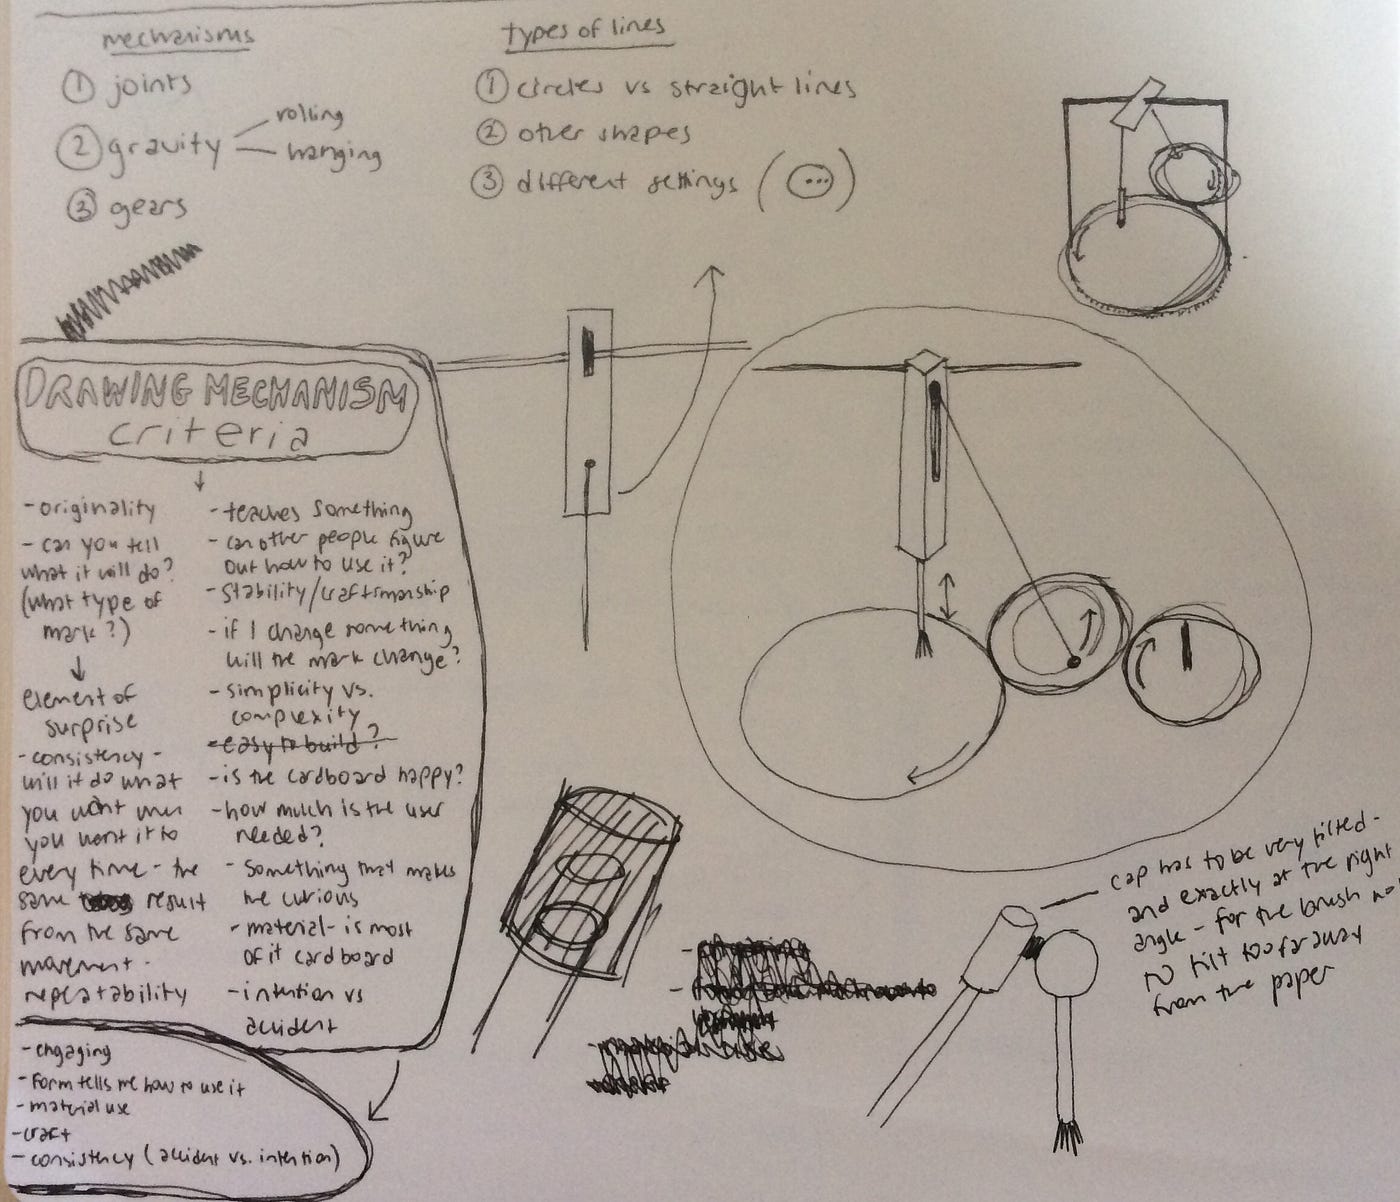 mechanisms
① joints
② gravity
rolling
hanging
③ gears
types of lines
① circles vs straight lines
② other shapes
③ different settings (...)
DRAWING MECHANISM
criteria
- originality
- can you tell
what it will do?
(what type of
mark?)
element of
surprise
- consistency -
will it do what
you want when
you want it to
every time - the
same result
from the same
movement -
repeatability
- teaches something
- can other people figure
out how to use it?
- stability/craftsmanship
- if I change something
will the mark change?
- simplicity vs.
complexity
- easy to build?
- is the cardboard happy?
- how much is the user
needed?
- something that makes
me curious
- material - is most
of it cardboard
- intention vs
accident
- engaging
- Form tells me how to use it
- material use
- craft
- consistency (accident vs. intention)
cap has to be very tilted -
and exactly at the right
angle - for the brush not
to tilt too far away
from the paper